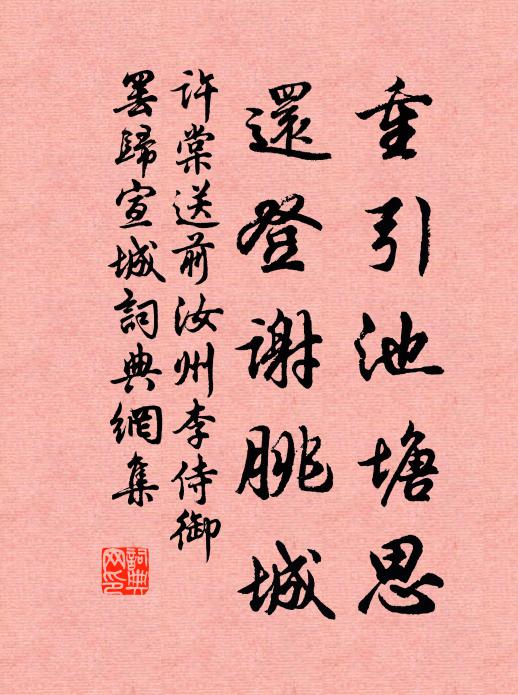 重引池塘思
還登謝朓城
許棠送前汝州李侍御
罢歸宣城詞典網集
詞典
网印